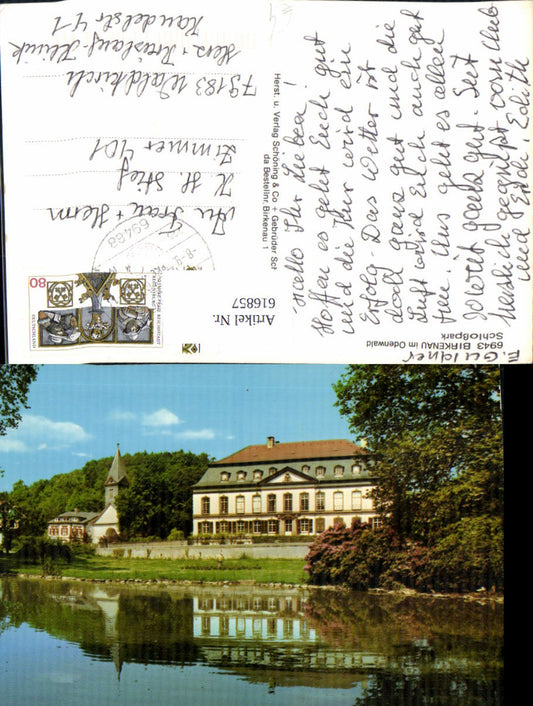 Hallo Ihr Lieben!
Hoffen es geht Euch gut
und die Kur wird ein
Erfolg. Das Wetter ist
doch ganz gut und die
Luft wird Euch auch gut
tun. Uns geht es allen
soweit ganz gut. Seit
herzlich gegrüßt vom Club
und Erich, Edith
F. Guldner
6943 BIRKENAU im Odenwald
Schloßpark
Herst. u. Verlag Schöning & Co + Gebrüder Sch
da Bestellnr. Birkenau 1
Artikel Nr.
616857
80
DEUTSCHLAND
69488
An Frau + Herrn
H. Stief
Zimmer 401
79183 Waldkirch
Herz + Kreislauf-Klinik
Kandelstr 41